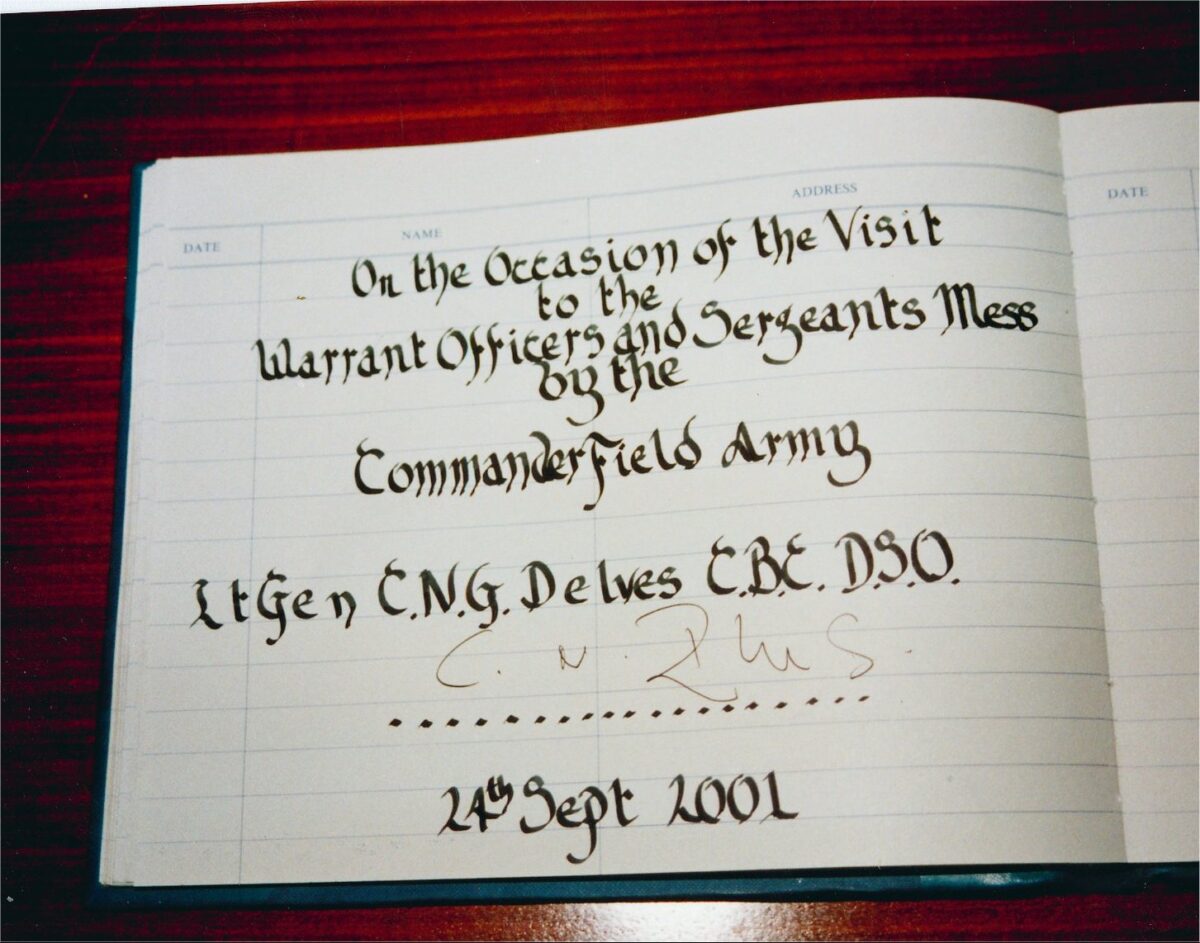 DATE NAME ADDRESS DATE
On the Occasion of the Visit
to the
Warrant Officers and Sergeants Mess
by the
Commander Field Army
Lt Gen C.N.G. Delves C.B.E. D.S.O.
24th Sept 2001